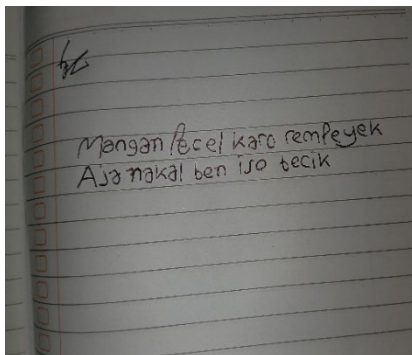 Mangan Pecel karo rempeyek
Aja nakal ben iso becik